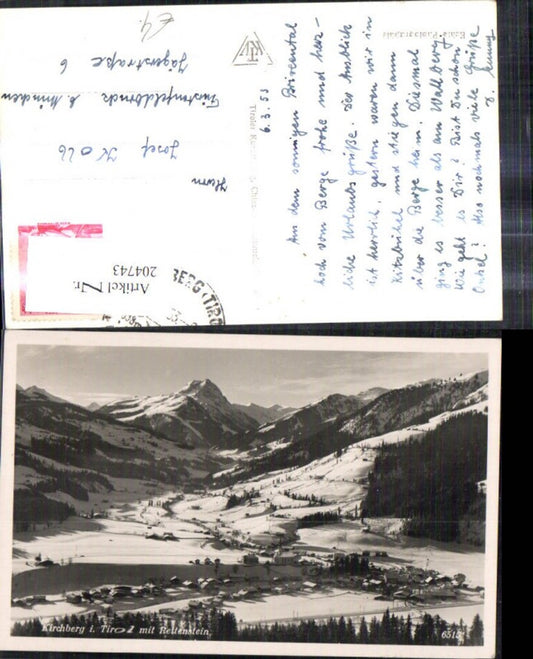 6.3.53
Aus dem sonnigen Brixental
hoch vom Berge frohe und herz-
liche Urlaubsgrüße. Der Ausblick
ist herrlich, gestern waren wir in
Kitzbühel und stiegen dann
über die Berge heim. Diesmal
ging es besser als am Wallberg
Wie geht es Dir? Bist Du schon
Onkel? Also nochmals viele Grüße
Herrn
Josef Kolb
Fürstenfeldbruck b. München
Jägerstraße 6
Artikel Nr.
204743
BERG (TIROL
Kirchberg i. Tirol mit Rettenstein.